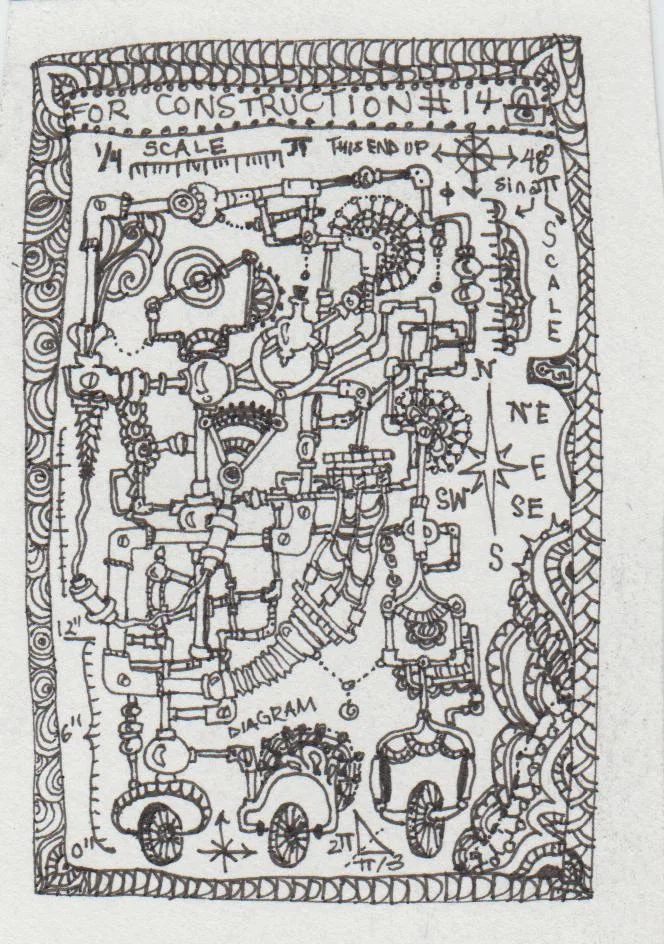 FOR CONSTRUCTION #14
1/4 SCALE II THIS END UP 48°
sin 2π
SCALE
N
NE
E
SW
SE
S
12"
6"
DIAGRAM
0"
2π
π/3